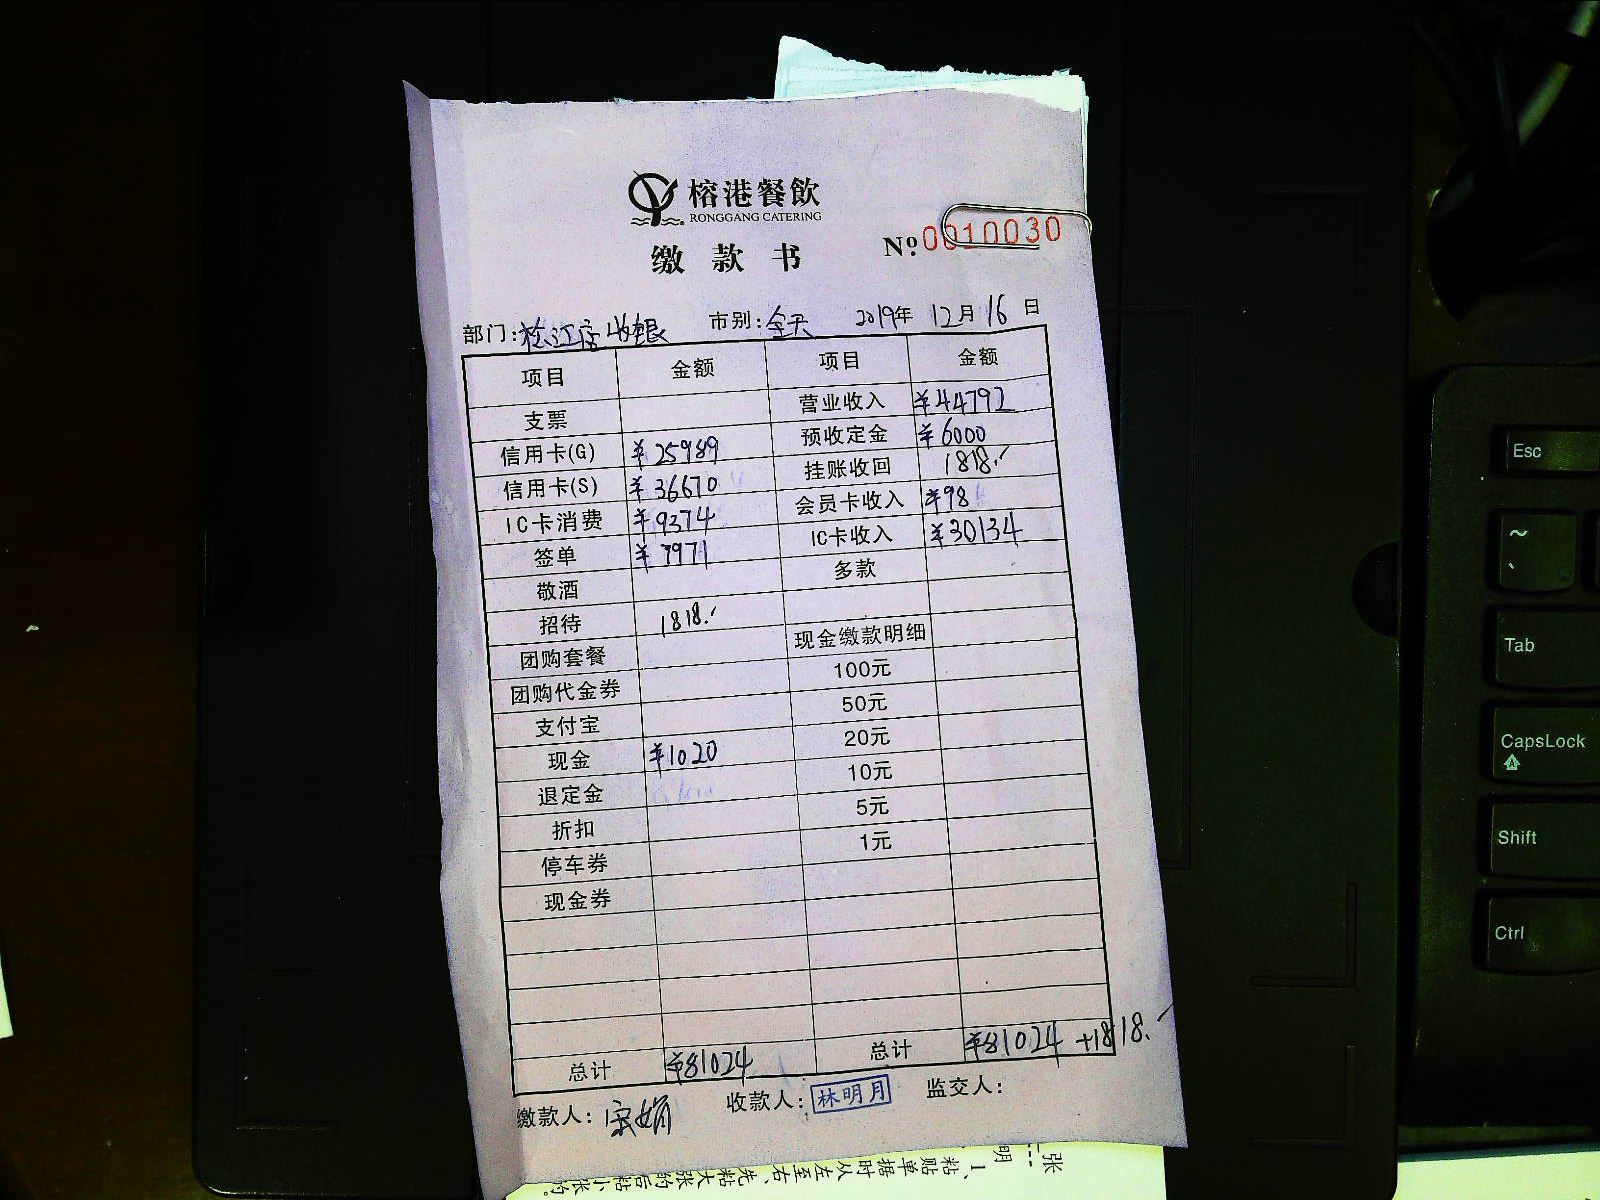 榕港餐飲
RONGGANG CATERING
缴款书 Nº.0010030
部门:松江店收银 市别:全天 2019年12月16日
项目 金额 项目 金额
支票 营业收入 ¥44792
信用卡(G) ¥25989 预收定金 ¥6000
信用卡(S) ¥36670 挂账收回 1818.-
IC卡消费 ¥9374 会员卡收入 ¥98
签单 ¥7971 IC卡收入 ¥30134
敬酒 多款
招待 1818.-
团购套餐 现金缴款明细
团购代金券 100元
支付宝 50元
现金 ¥1020 20元
退定金 10元
折扣 5元
停车券 1元
现金券
总计 ¥81024 总计 ¥81024 +1818.-
缴款人: 收款人:林明月 监交人:
1、粘贴单据时从左至右、先粘大张的后粘小张的。
明
张
Esc
~
Tab
CapsLock
Shift
Ctrl